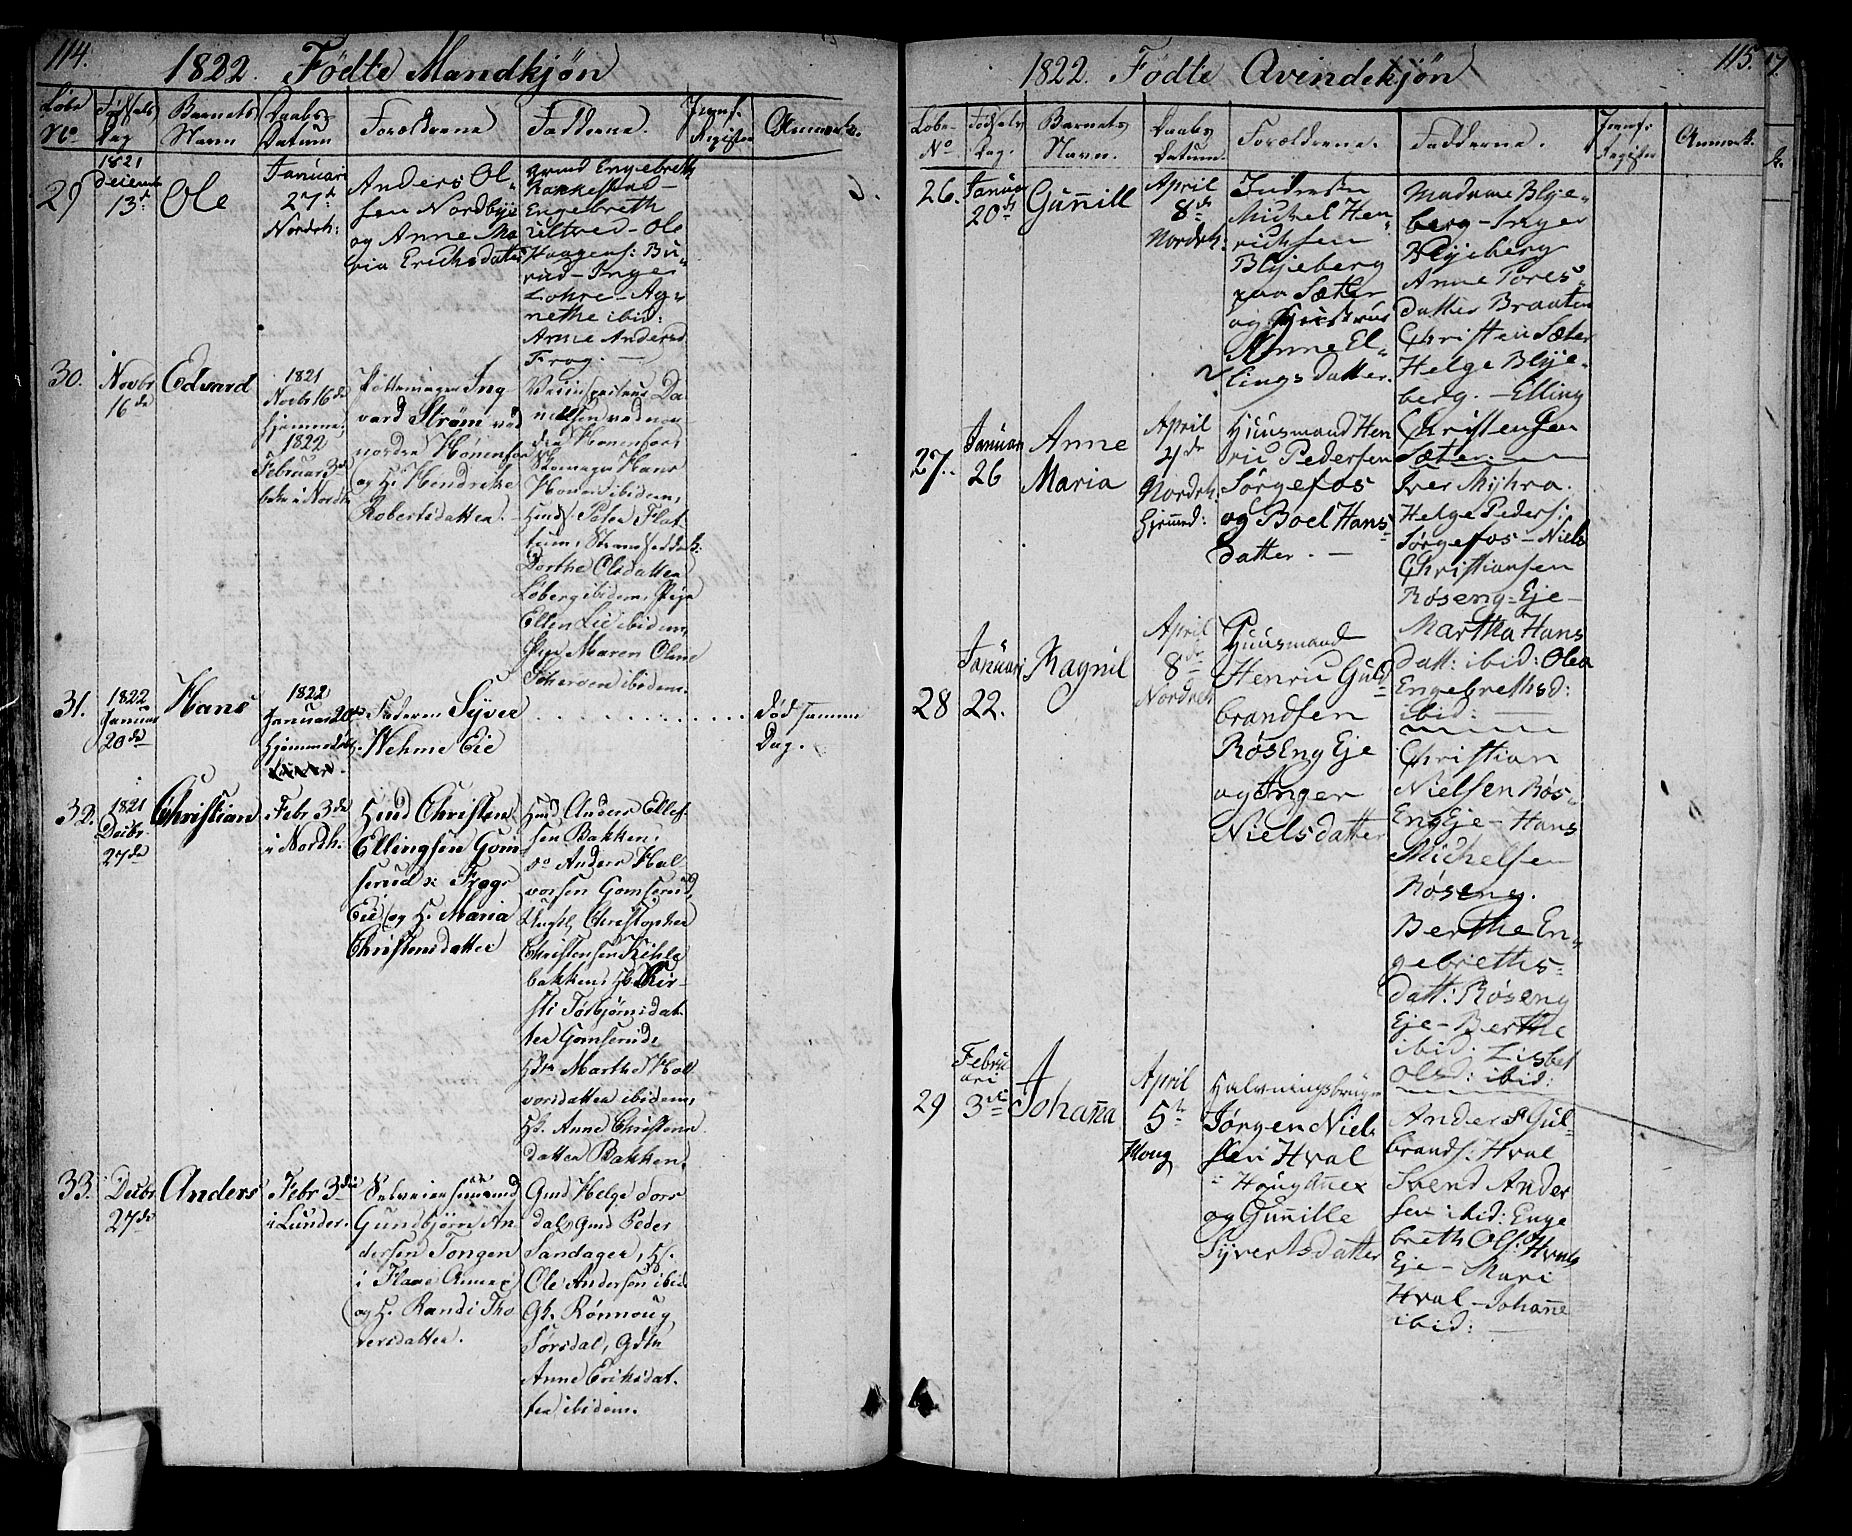 114.
1822. Födte Mandkjön
Löbe No
Födsels Dag
Barnets Navn
Daabs Datum
Forældrene
Fadderne.
Jevnf. Register
Anmærk.
29
1821
13de
Ole
Januari
27de
Nordrh:
Anders Ol-
sen Nordbye
og Anne Ma
ria Erichsdatter
Engebreth
Engebreth
Ole
Haagens: Bu-
rud - Inge
Lohre - Ag-
nethe ibid:
Anne Anders
Frog. -
30.
Novbr
16de
Edvard
1821
Novb 16de
hjemme,
1822
Februar 3de
Pottemager Ing
vard Ström ved
nordre Hönenfos
og H. Hendrikke
Robertsdatter.
Da-
nielsen ved nor-
dre Hönenfos,
Skomager Hans
Honen ibidem,
Peter Flat-
tum,
Dorthe Olsdatter
Loberg ibidem, Pige
Ellen Lie ibidem,
Pige Maren Oline
ibidem.
31.
1822
Januar
20de
Hans
1822
Januar 20de
Hjemmedöbt.
Faderen Syver
Wehme Eie
. . . . . . . . . . . .
Död samme
Dag.
32.
1821
Decbr
27de
Christian
Febr 3de
i Nordh.
Huusmd Christen
Ellingsen Gom-
serud i Frogs
Eie, og H. Maria
Christensdatter
Anders Ellef-
sen Bakken,
do Anders Hal
vorsen Gomserud,
Ungk. Christopher
Christensen Kihle
bakken, Kir-
sti Torbjörnsdat-
ter Gomserud,
Marthe Hal
vorsdatter ibidem,
H. Anne Christens
datter Bakken.
33.
Decbr
27de
Anders
Febr 3de
i Lunder.
Gundbjörn An
dersen Tongen
i Flaae Annex
og H. Randi Tho
versdatter.
Gmd Helge Sörs
dal, Gmd Peder
Sandager,
Ole Andersen ibid
Gk. Rönnoug
Sörsdal, Gdtr
Anne Eriksdat-
ter ibidem.
115.
1822. Födte Qvindekjön
Löbe-No
Födsels Dag.
Barnets Navn.
Daabs Datum.
Forældrene.
Fadderne.
Jevnf: Register
Anmærk.
26.
Januar
20de
Gunnill
April
8de
Nordrh:
Inderster
Michel Hen-
richsen
Blyeberg
paa Sæter
og Hustrue
Anne El-
lingsdatter.
Madame Blye-
berg - Inger
Blyeberg
Anne Tores-
datter Braaten
Christen Sæter
Helge Blye-
berg. - Elling
Christensen
Sæter.
27.
Januar
26
Anne
Maria
April
Nordrh.
Huusmand Hen
ric Pedersen
Sörgefos
og Boel Hans-
datter. -
Iver Myhra.
Helge Peders:
Sörgefos - Niels
Christiansen
Röseng-Eje -
Martha Hans
datt: ibid: Olea
Engebrethsd:
ibid:
28
Januari
22.
Ragnil
April
8de
Nordreh
Huusmand
Henric Guld-
brandsen
RösEng Eje
og Inger
Nielsdatter
Christian
Nielsen Rös-
EngEje - Hans
Michelsen
Röseng.
Berthe En-
gebreths-
datt: Röseng
Eje - Berthe
ibid: Lisbet
Olsd: ibid:
29
Febru
ari
3de
Johanna
April
5te
Houg
Halvningsbruger
Jörgen Niel-
sen Hval
Houg Annex
og Gunnille
Syvertsdatter
Anders Gul-
brands: Hval
Svend Ander
sen ibid: Enge
breth Ols: Hvals
Eje - Mari
Hval - Johanne
ibid: